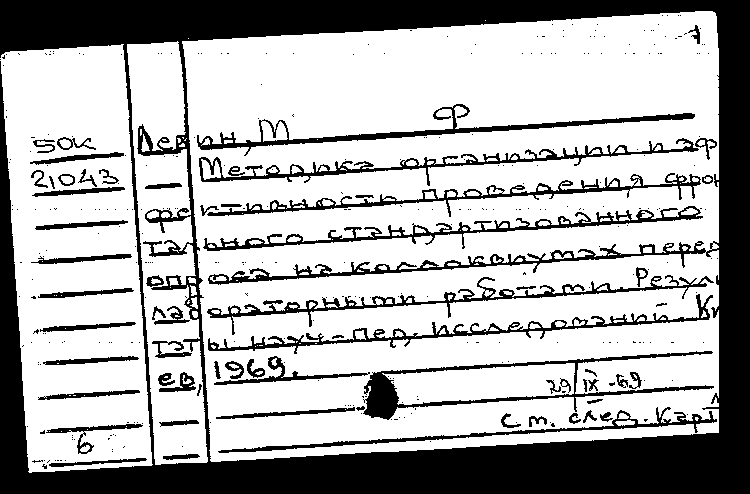 1
50к Левин, М Ф
21043 Методика организации и эф
фективность проведения фрон
тального стандартизованного
опроса на коллоквиумах перед
лабораторными работами. Резуль
таты науч-пед. исследований. Ки
ев, 1969.
29/IX-69
6 Ст. след. карт